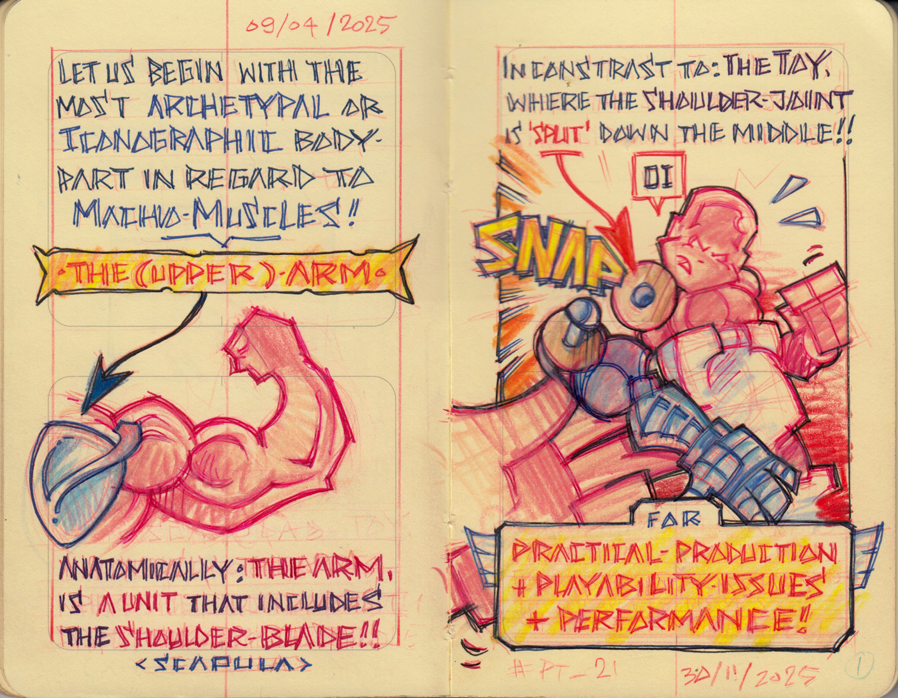 09/04/2025
LET US BEGIN WITH THE
MOST ARCHETYPAL OR
ICONOGRAPHIC BODY-
PART IN REGARD TO
MACHO-MUSCLES!
·THE (UPPER)·ARM·
ANATOMICALLY: THE ARM,
IS A UNIT THAT INCLUDES
THE SHOULDER-BLADE!!
<SCAPULA>
IN CONSTRAST TO: THE TOY,
WHERE THE SHOULDER-JOINT
IS 'SPLIT' DOWN THE MIDDLE!!
OI
SNAP
FOR
PRACTICAL-PRODUCTION
+ PLAYABILITY-ISSUES
+ PERFORMANCE!
#PT_21
30/11/2025
1